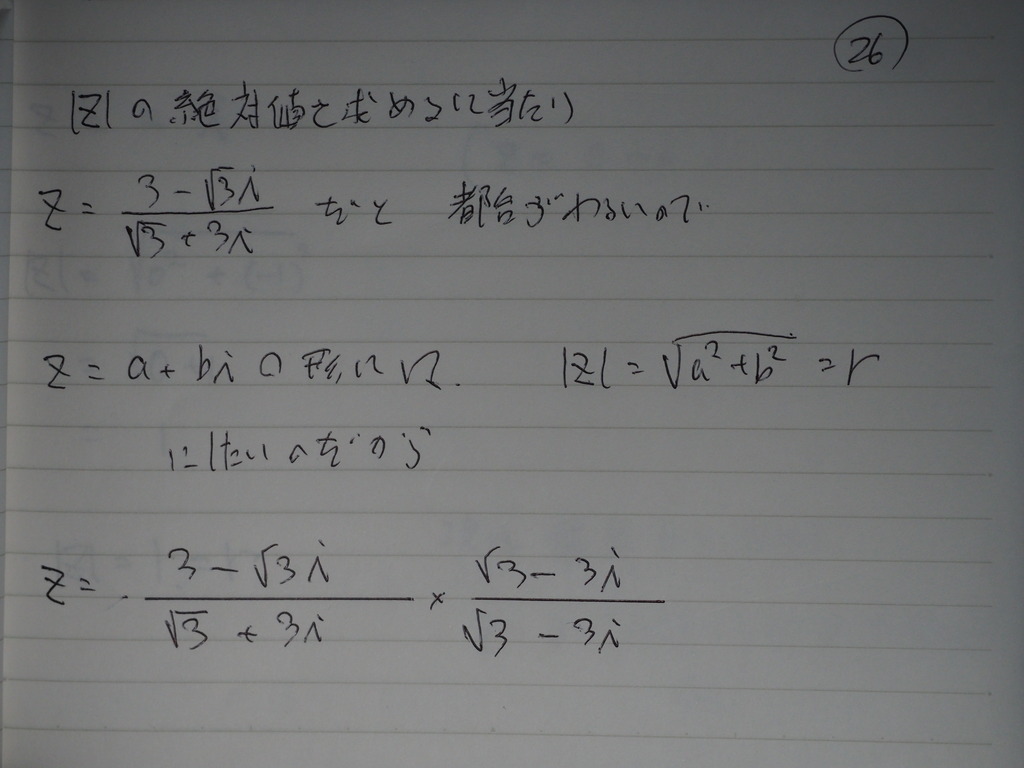 26
|Z|の絶対値を求めるに当たり
Z = \frac{3 - \sqrt{3}i}{\sqrt{3} + 3i} だと 都合がわるいので
Z = a + bi の形に |Z| = \sqrt{a^2 + b^2} = r
にしたいのだから
Z = \frac{3 - \sqrt{3}i}{\sqrt{3} + 3i} × \frac{\sqrt{3} - 3i}{\sqrt{3} - 3i}